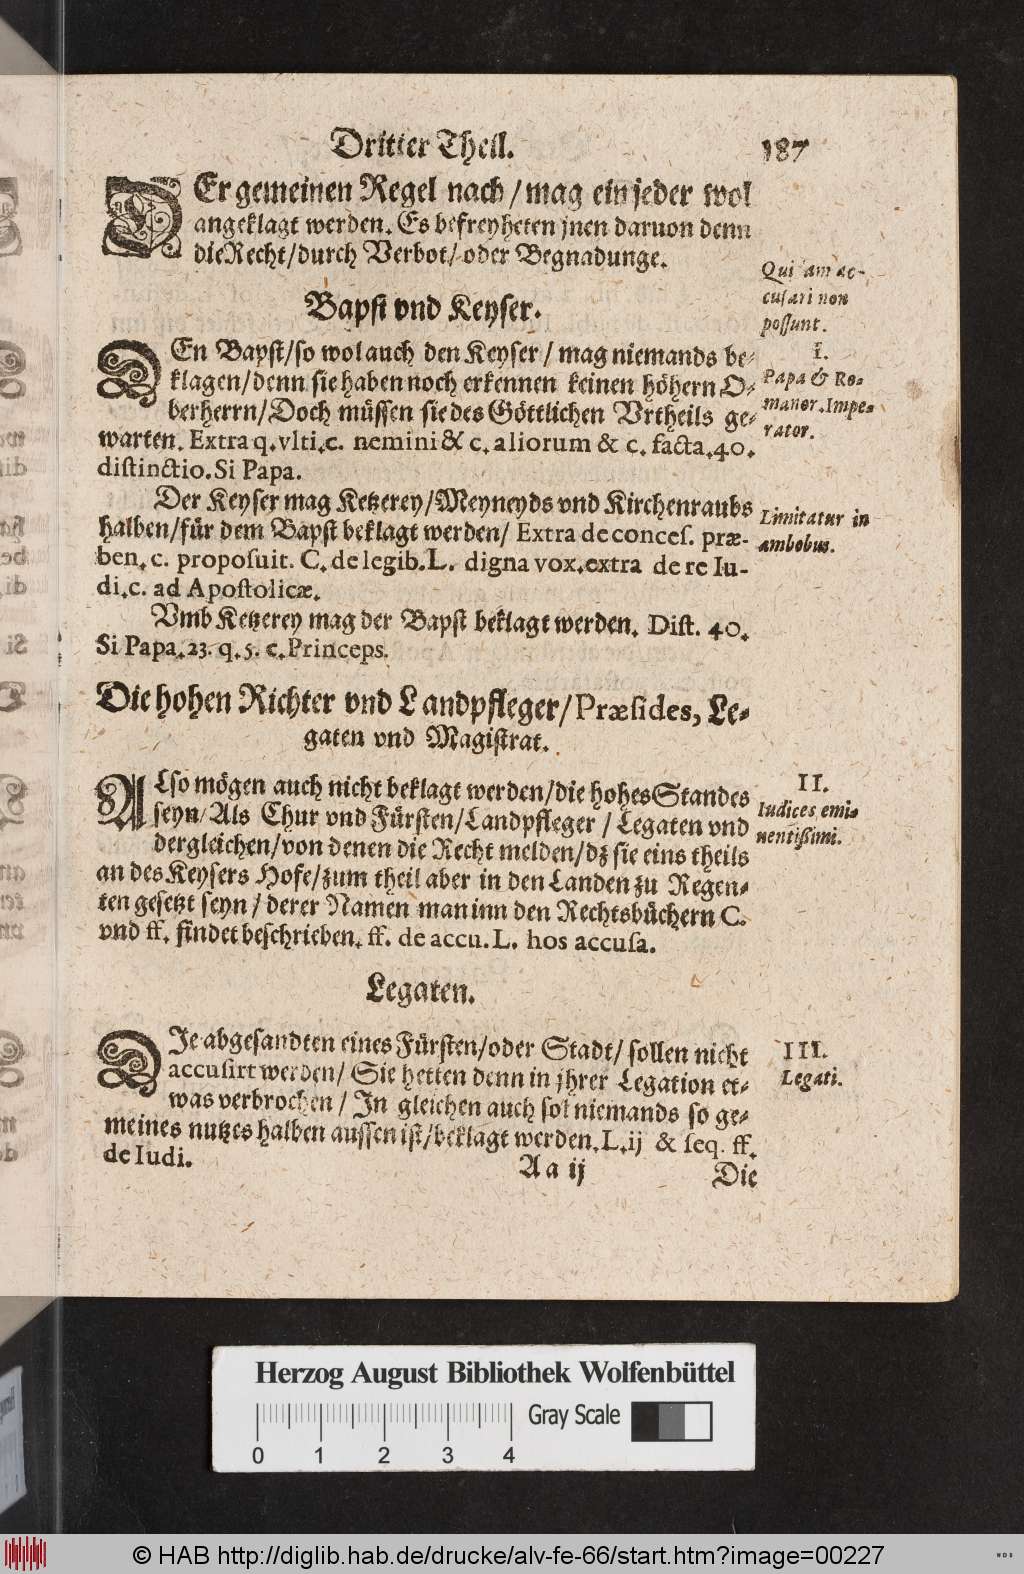 Dritter Theil. 187
DEr gemeinen Regel nach / mag ein jeder wol
angeklagt werden. Es befreyheten jnen daruon denn
die Recht / durch Verbot / oder Begnadunge.
Qui iam ac-
cusari non
possunt.
Bapst vnd Keyser.
DEn Bapst / so wol auch den Keyser / mag niemands be-
klagen / denn sie haben noch erkennen keinen höhern O-
berherrn / Doch müssen sie des Göttlichen Vrtheils ge-
warten. Extra q. vlti. c. nemini & c. aliorum & c. facta. 40.
distinctio. Si Papa.
I.
Papa & Ro-
manor. Impe-
rator.
Der Keyser mag Ketzerey / Meyneyds vnd Kirchenraubs
halben / für dem Bapst beklagt werden / Extra de conces. præ-
ben. c. proposuit. C. de legib. L. digna vox. extra de re Iu-
di. c. ad Apostolicæ.
Limitatur in
ambobus.
Vmb Ketzerey mag der Bapst beklagt werden. Dist. 40.
Si Papa. 23. q. 5. c. Princeps.
Die hohen Richter vnd Landpfleger / Præsides, Le-
gaten vnd Magistrat.
ALso mögen auch nicht beklagt werden / die hohes Standes
seyn / Als Chur vnd Fürsten / Landpfleger / Legaten vnd
dergleichen / von denen die Recht melden / dz sie eins theils
an des Keysers Hofe / zum theil aber in den Landen zu Regen-
ten gesetzt seyn / derer Namen man inn den Rechtsbüchern C.
vnd ff. findet beschrieben. ff. de accu. L. hos accusa.
II.
Iudices emi-
nentißimi.
Legaten.
DIe abgesandten eines Fürsten / oder Stadt / sollen nicht
accusirt werden / Sie hetten denn in jhrer Legation et-
was verbrochen / In gleichen auch sol niemands so ge-
meines nutzes halben aussen ist / beklagt werden. L. ij & seq. ff.
de Iudi.
III.
Legati.
Aa ij Die
Herzog August Bibliothek Wolfenbüttel
0 1 2 3 4 Gray Scale
© HAB http://diglib.hab.de/drucke/alv-fe-66/start.htm?image=00227